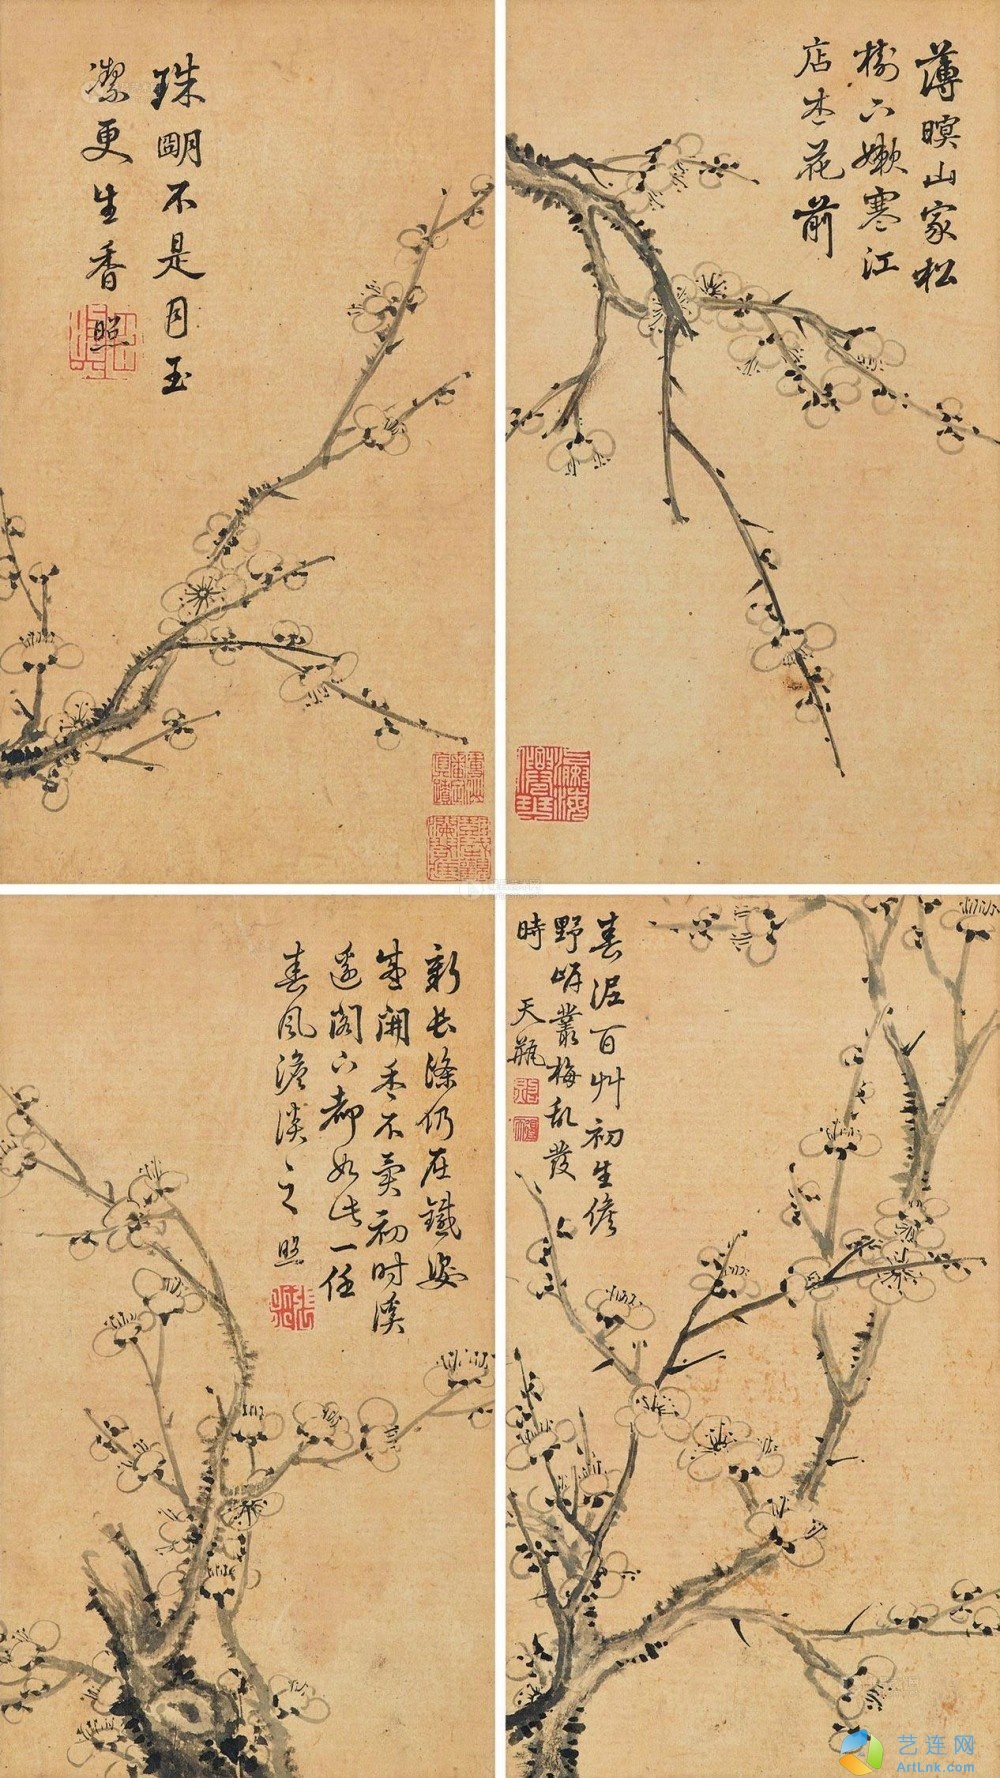 薄暝山家松
樹下嫩寒江
店杏花前
珠明不是月玉
潔更生香
照
春泥百艸初生後
野𡶶叢梅乱發
時
天瓶
新長條仍在鐵老
開香不賣初时溪
邊閣下都如此一任
春風澹淡之
照
艺连网
ArtLnk.com